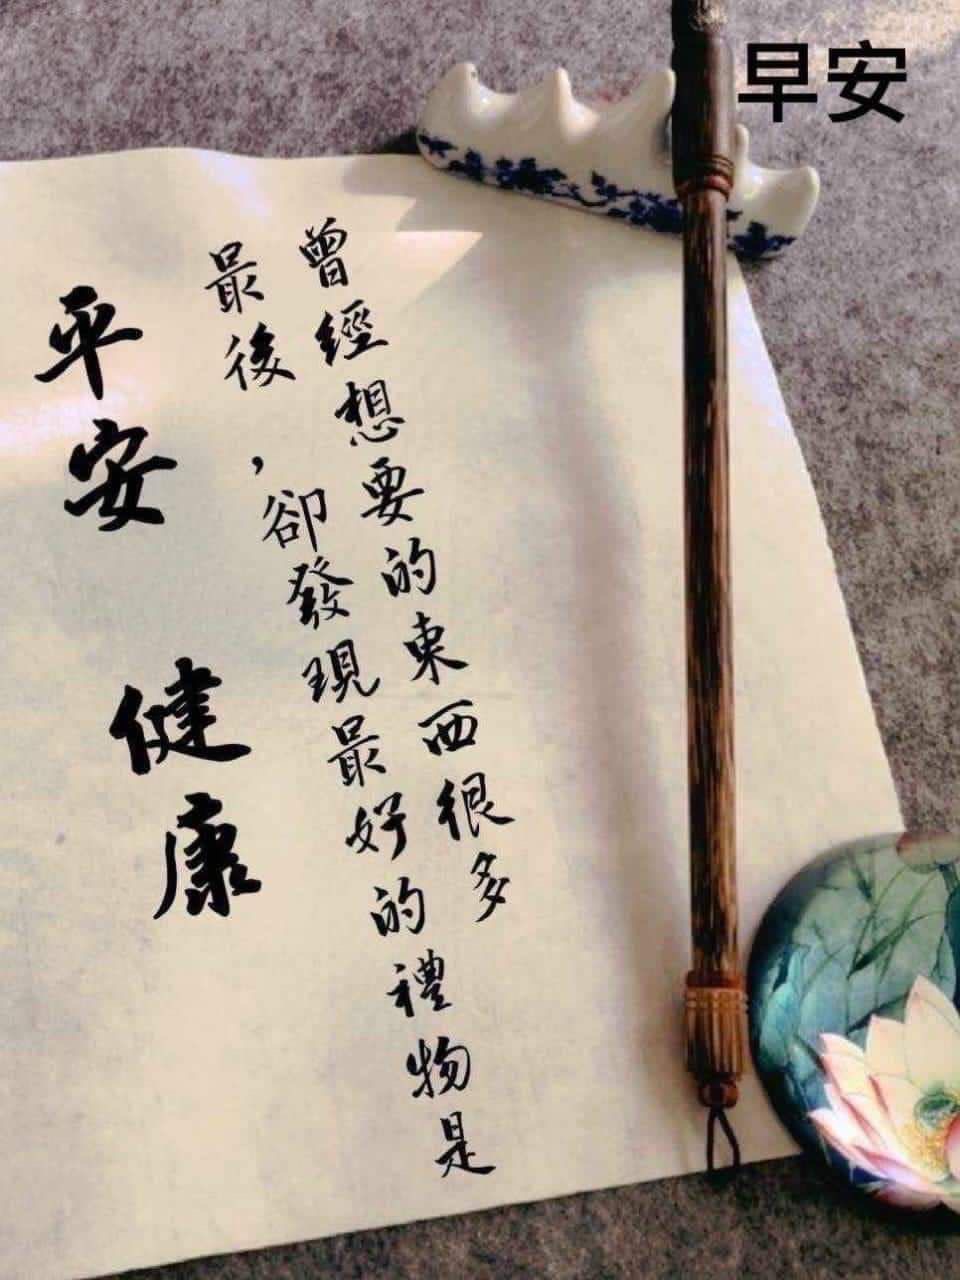 早安
曾經想要的東西很多
最後，卻發現最好的禮物是
平安 健康